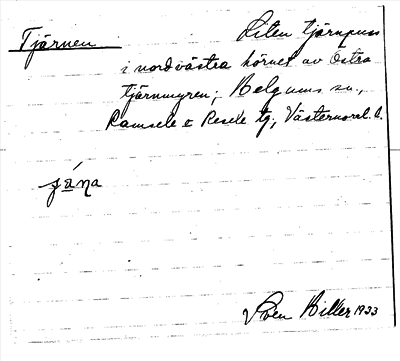 Tjärnen Liten tjärnpuss
i nordvästra hörnet av Östra
tjärnmyren; Helgums sn.,
Ramsele & Resele tg; Västernorrl. l.
Sven Hiller 1933